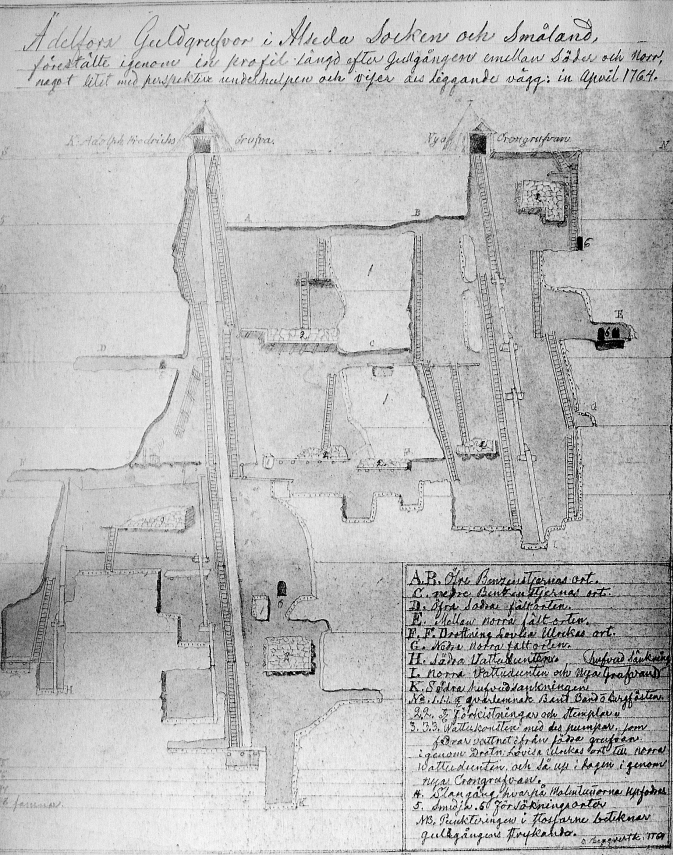 Ädelfors Guldgrufvor i Alseda Socken och Småland,
föreställte igenom en profil längd efter Gullgången emellan Söder och Norr,
något litet med perspektiv underhulpen och viser des liggande vägg: in April 1764.
K. Adolph Fredrichs Grufva.
Nya Crongrufvan
S
N
A
B
2
6
1
E
5
2
C
D
1
G
F
2
2
2
2
L
2
H
K
famnar
A.B. Öfre Benzenstjernas ort.
C. nedre Benzenstjernas ort.
D. Öfra Södra fältorten.
E. Mellan norra fält orten.
F. F. Drottning Lovisa Ulrickas ort.
G. Nedra Norra fältorten.
H. Södra Vattudunten.
I. Norra Vattudunten och Nya grufvans hufvud sänkning
K. Södra hufvudsänkningen
No. 1.1.1. qvarlemnade Band och Bergfästen
2.2. Förkistningar och Stemplar
3.3.3. Vattukonsten med des pumpar, som
fodrar vattnet ifrån södra grufvan
igenom Drotn. Lovisa Ulrikas ort till norra
Vattudunten, och så up i dagen igenom
nya Crongrufvan.
4. Slangång, hvarpå Malmtunnorna upfodras
5. Smedja. 6 Försökningsorter
NB. Punkteringen i
gullgångens strykande.